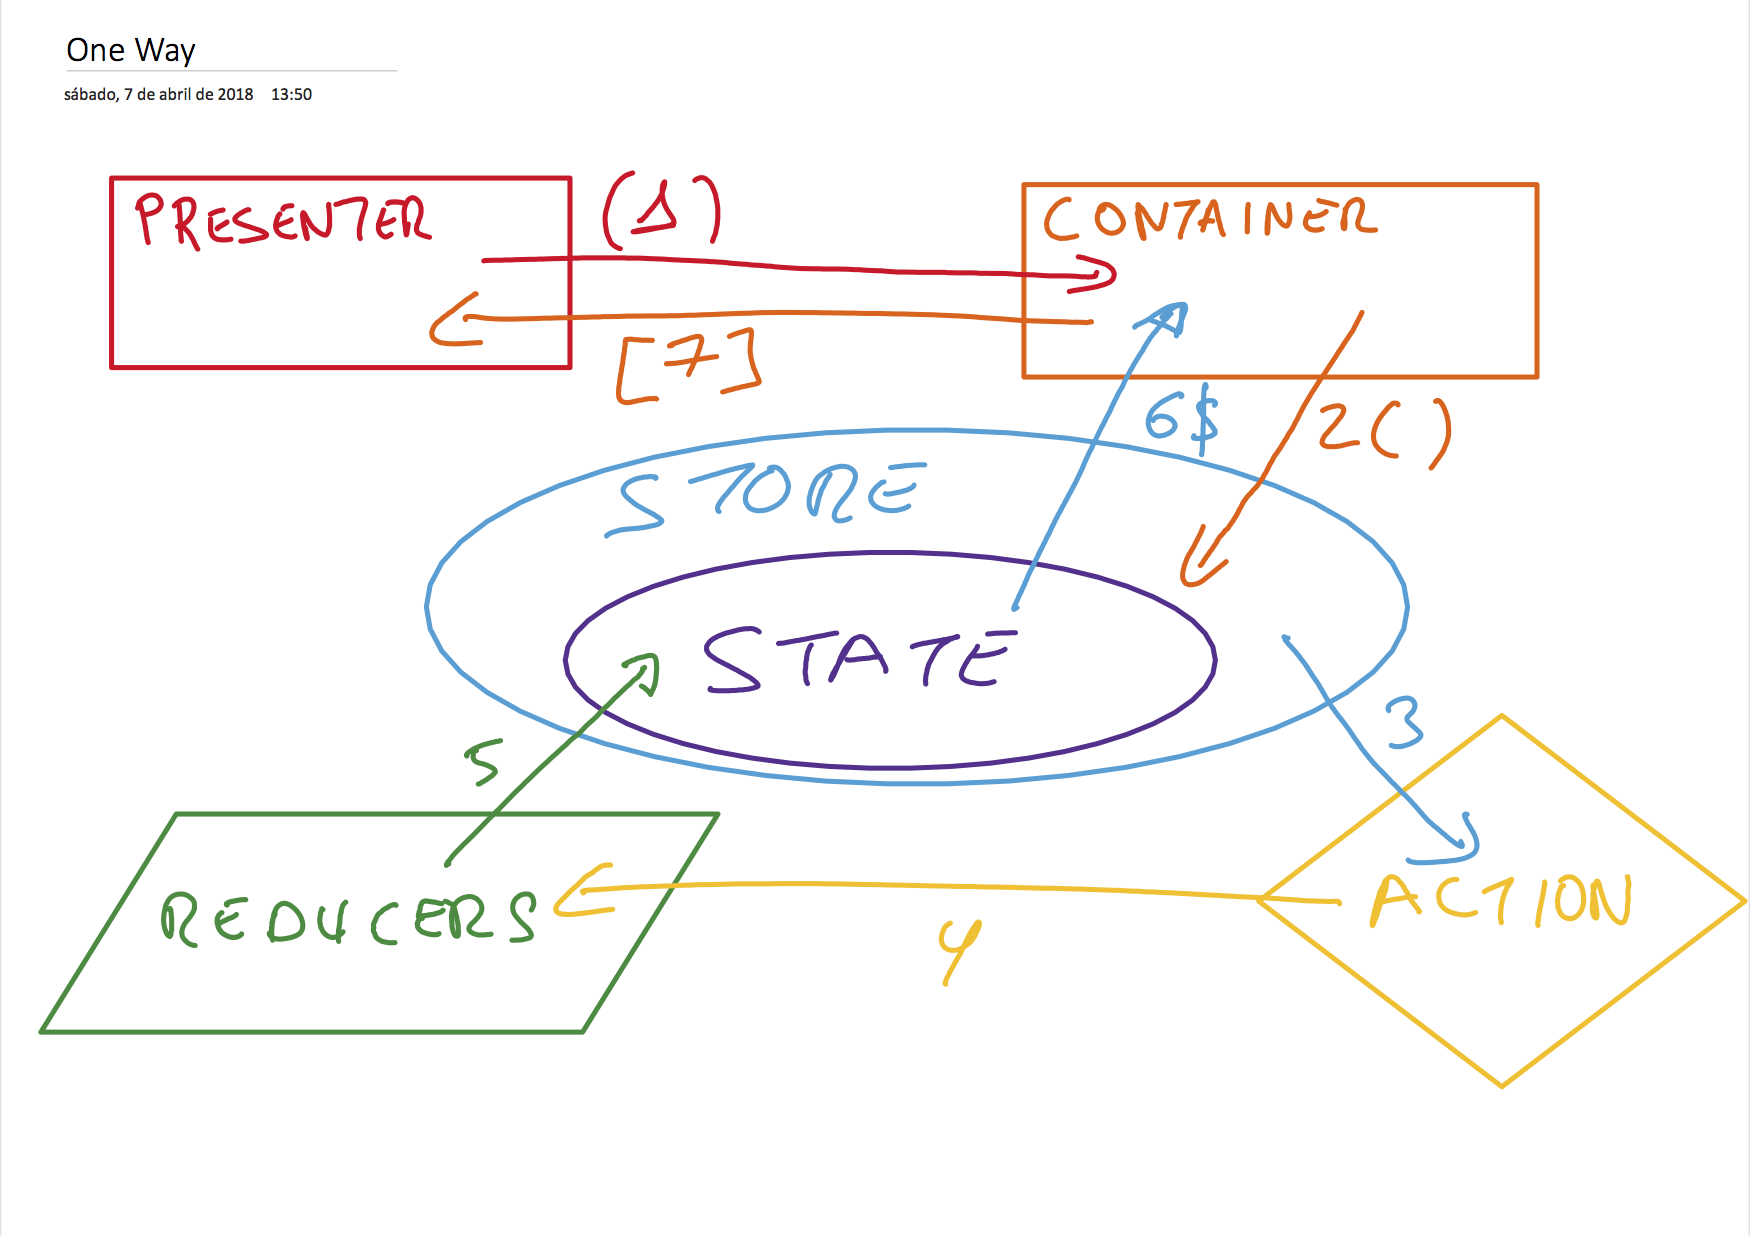 One Way
sábado, 7 de abril de 2018 13:50
PRESENTER
(1)
CONTAINER
[7]
6$
2()
STORE
STATE
3
5
REDUCERS
ACTION
4